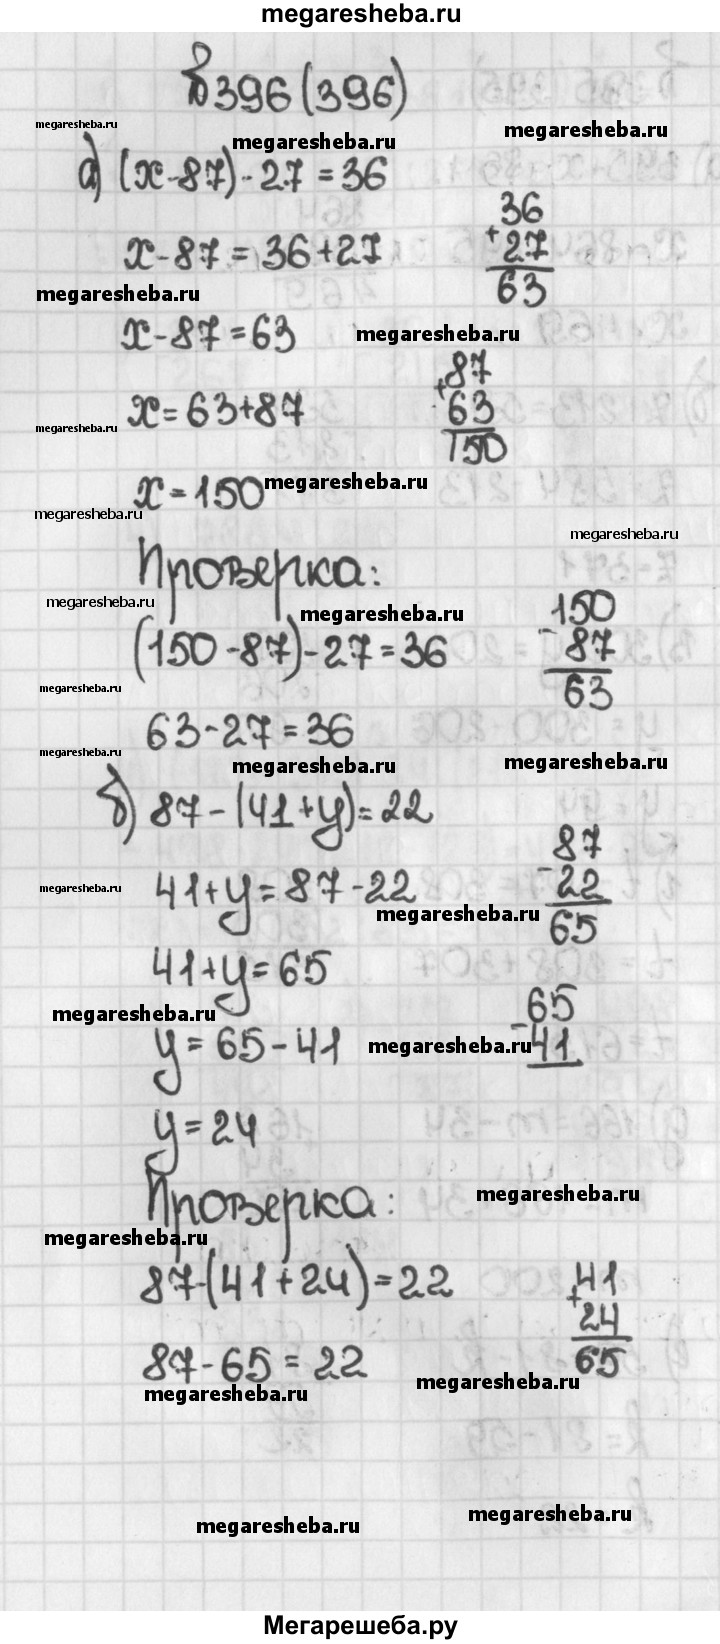 megaresheba.ru
№396(396)
megaresheba.ru
megaresheba.ru
megaresheba.ru
а) (x-87)-27=36
36
+27
63
x-87=36+27
megaresheba.ru
x-87=63
megaresheba.ru
87
+63
150
x=63+87
megaresheba.ru
x=150
megaresheba.ru
megaresheba.ru
megaresheba.ru
Проверка:
megaresheba.ru
megaresheba.ru
150
-87
63
(150-87)-27=36
megaresheba.ru
63-27=36
megaresheba.ru
megaresheba.ru
megaresheba.ru
б) 87-(41+y)=22
87
-22
65
41+y=87-22
megaresheba.ru
megaresheba.ru
41+y=65
65
-41
megaresheba.ru
y=65-41
megaresheba.ru
y=24
Проверка:
megaresheba.ru
megaresheba.ru
87-(41+24)=22
41
+24
65
87-65=22
megaresheba.ru
megaresheba.ru
megaresheba.ru
megaresheba.ru
Мегарешеба.ру